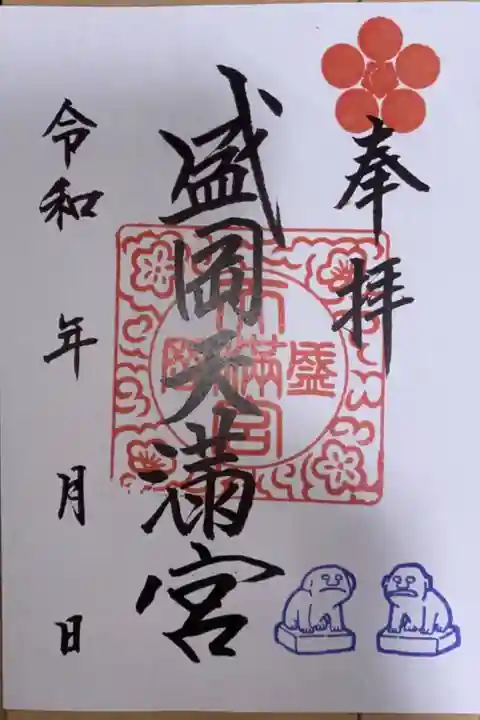 奉拝
盛岡天満宮
盛岡
天満宮
令和 年 月 日